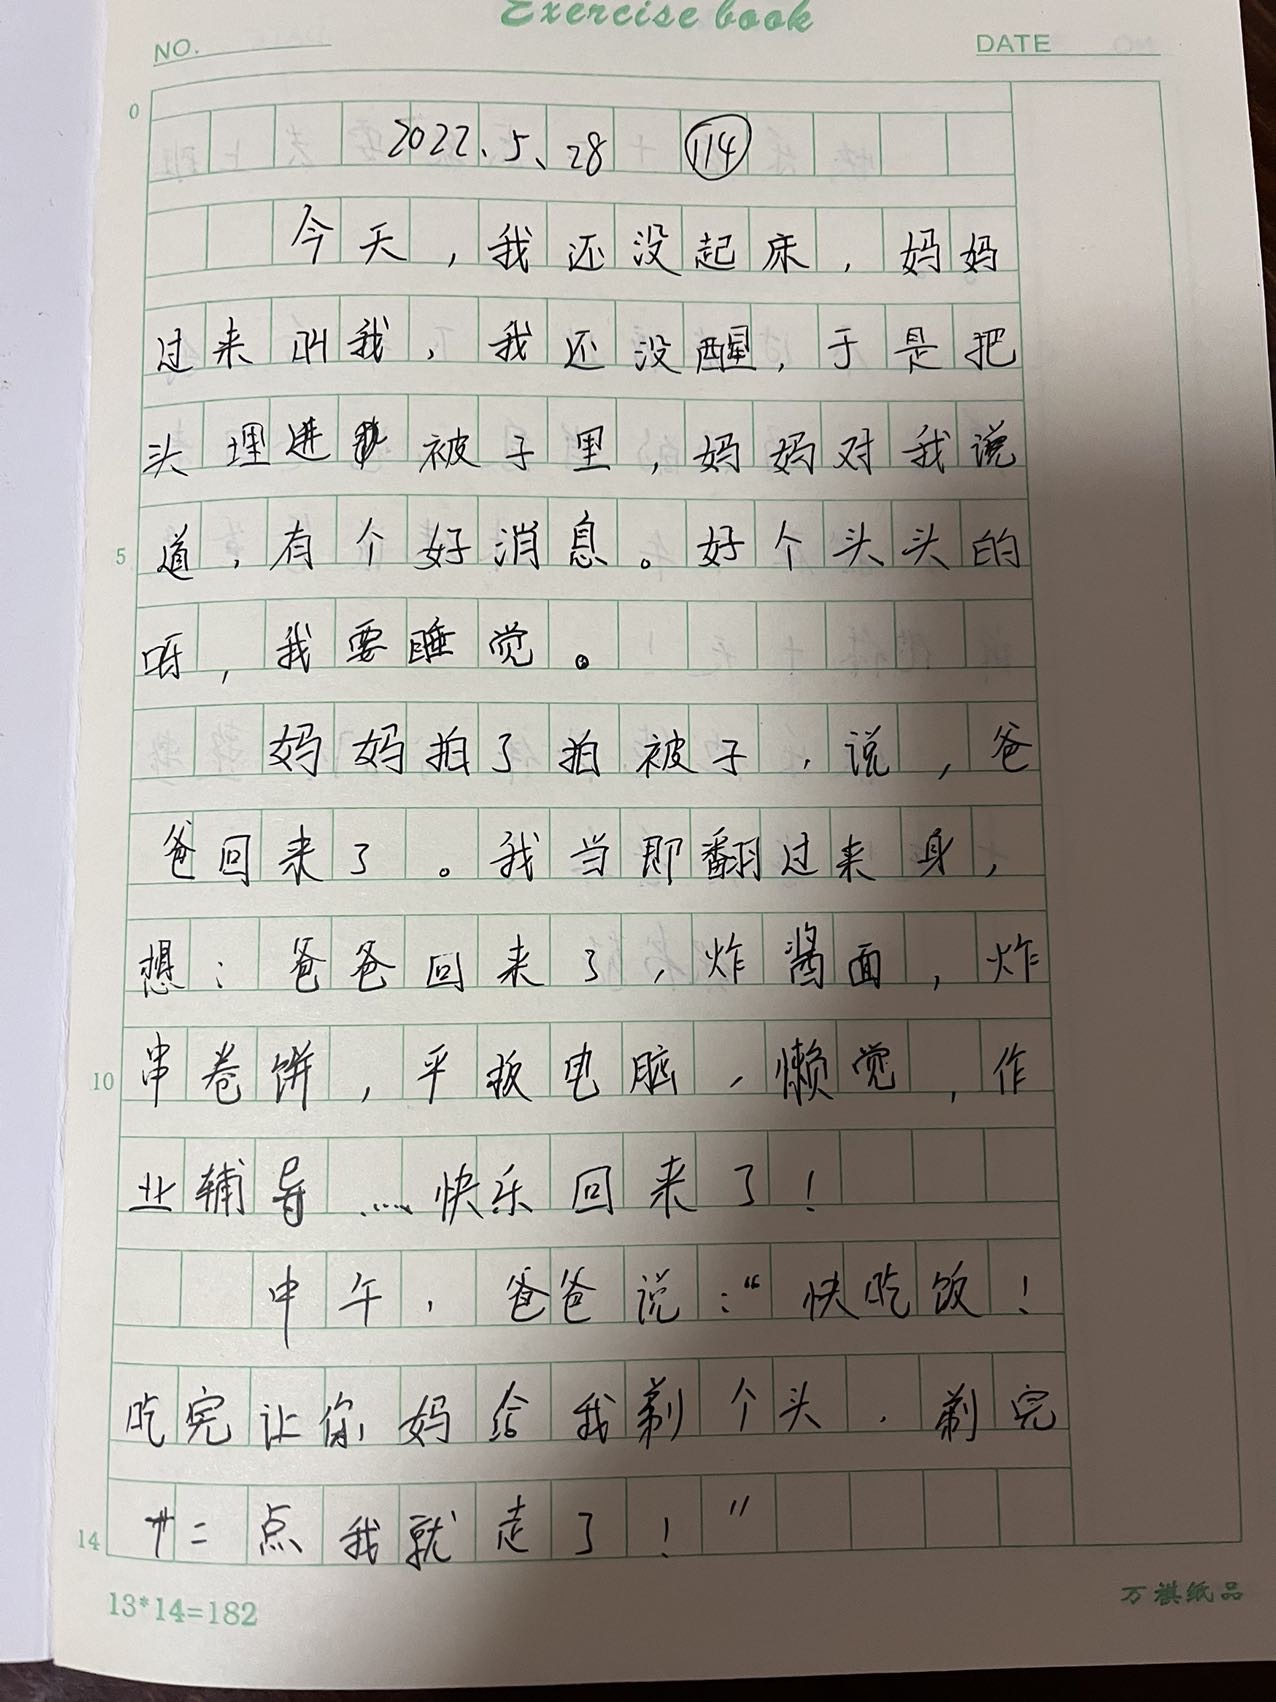 Exercise book
NO.
DATE
0
2022、5、28 114
今天，我还没起床，妈妈
过来叫我，我还没醒，于是把
头埋进被子里，妈妈对我说
5 道，有个好消息。好个头头的
呀，我要睡觉。
妈妈拍了拍被子，说，爸
爸回来了。我当即翻过来身，
想：爸爸回来了，炸酱面，炸
10 串卷饼，平板电脑，懒觉，作
业辅导……快乐回来了！
中午，爸爸说：“快吃饭！
吃完让你妈给我剃个头，剃完
14 十二点我就走了！”
13*14=182
万祺纸品